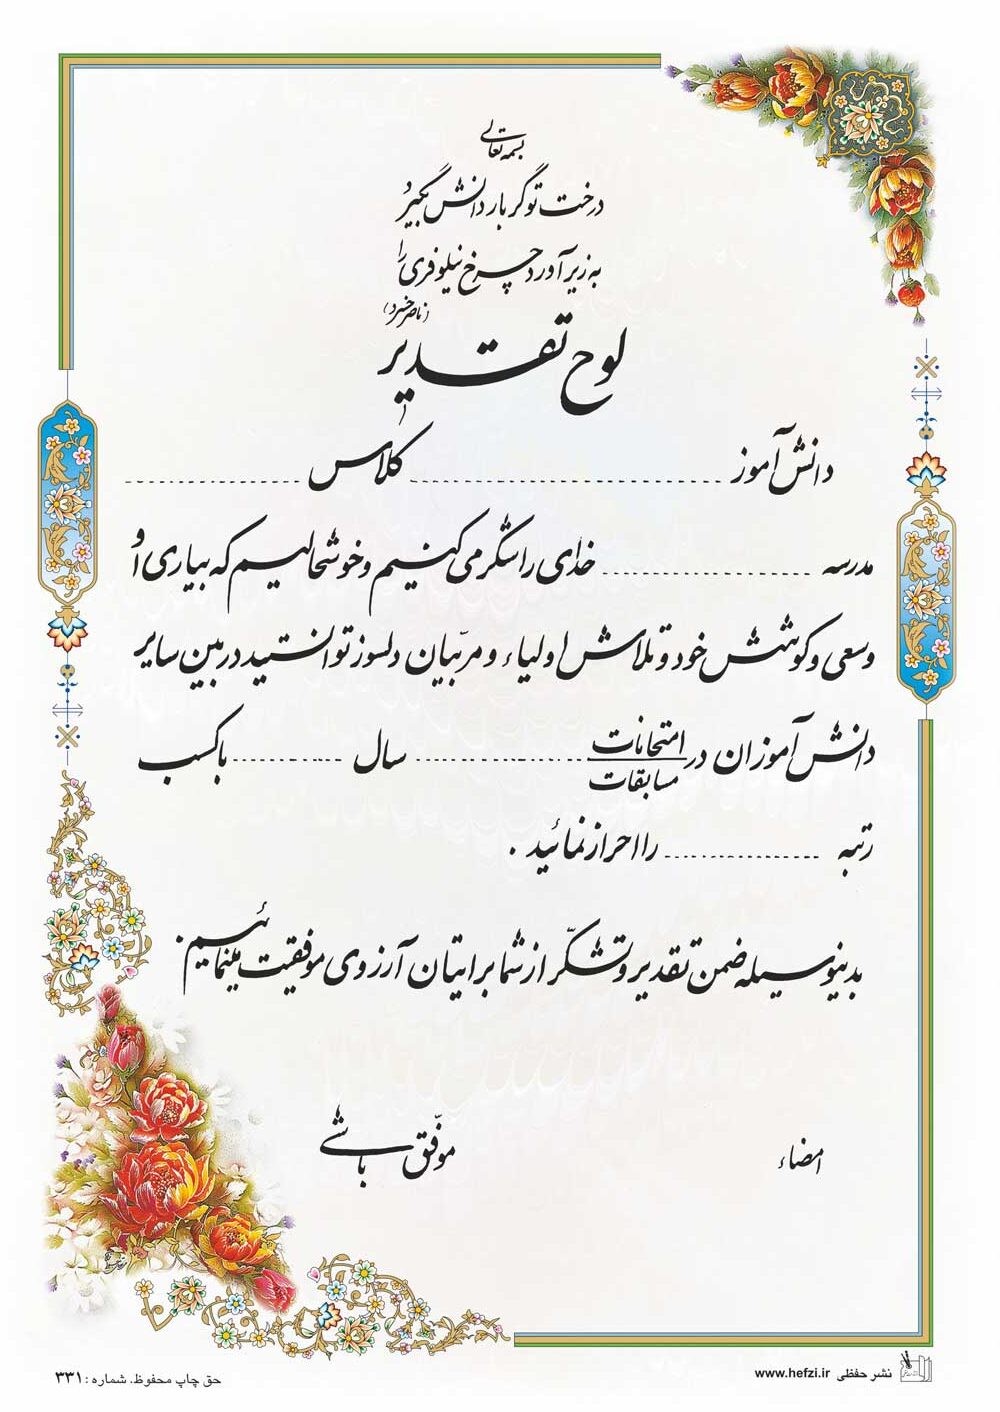 بسمه تعالی
درخت تو گر بار دانش بگیرد
به زیر آورد چرخ نیلوفری را
(ناصر خسرو)
لوح تقدیر
دانش آموز .............................. کلاس ..................
مدرسه ...................... خدای را شکر می کنیم و خوشحالیم که بیاری او
و سعی و کوشش خود و تلاش اولیاء و مربّیان دلسوز توانستید در بین سایر
دانش آموزان در امتحانات ................ سال ............ با کسب
مسابقات
رتبه .................. را احراز نمائید .
بدینوسیله ضمن تقدیر و تشکّر از شما برایتان آرزوی موفقیت مینمائیم .
امضاء
موفّق باشی
نشر حفظی www.hefzi.ir
حق چاپ محفوظ. شماره : ۳۳۱